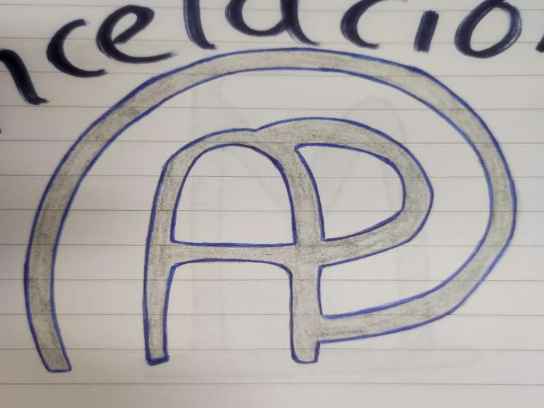 ncelacion
AP